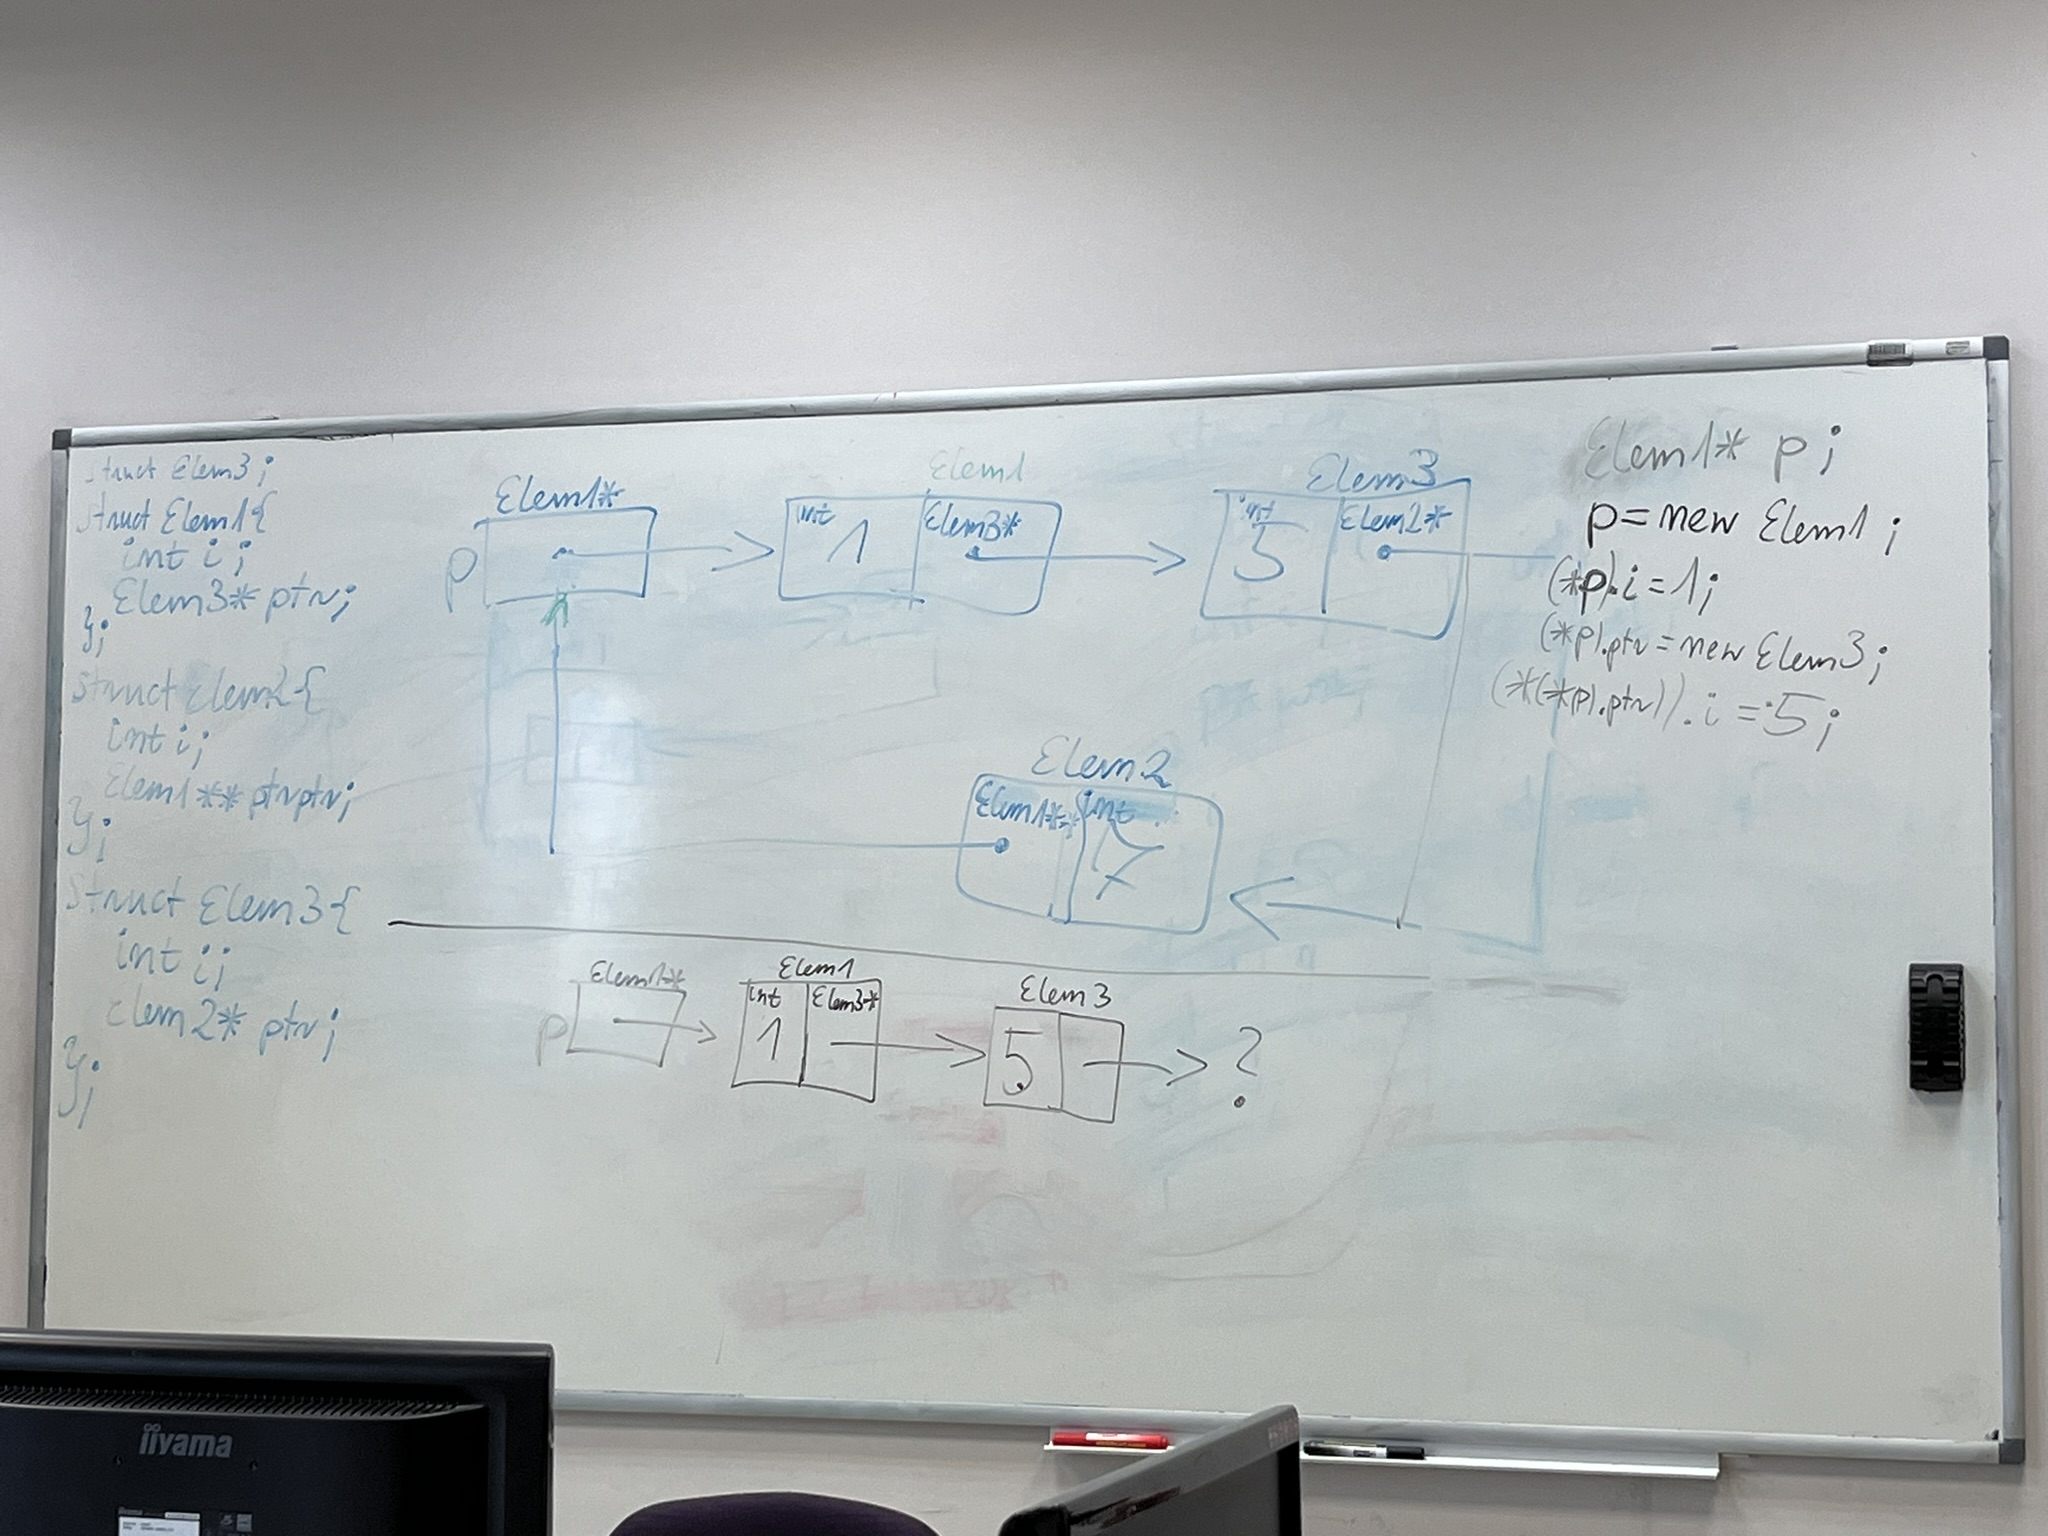 struct Elem3;
struct Elem1{
int i;
Elem3* ptr;
};
struct Elem2{
int i;
Elem1** ptrptr;
};
struct Elem3{
int i;
Elem2* ptr;
};
Elem1*
p
Elem1
int
1
Elem3*
Elem3
int
5
Elem2*
Elem2
Elem1**
int
7
Elem1*
p
Elem1
int
1
Elem3*
Elem3
5
?
Elem1* p;
p=new Elem1;
(*p).i=1;
(*p).ptr=new Elem3;
(*(*p).ptr)).i=5;
iiyama